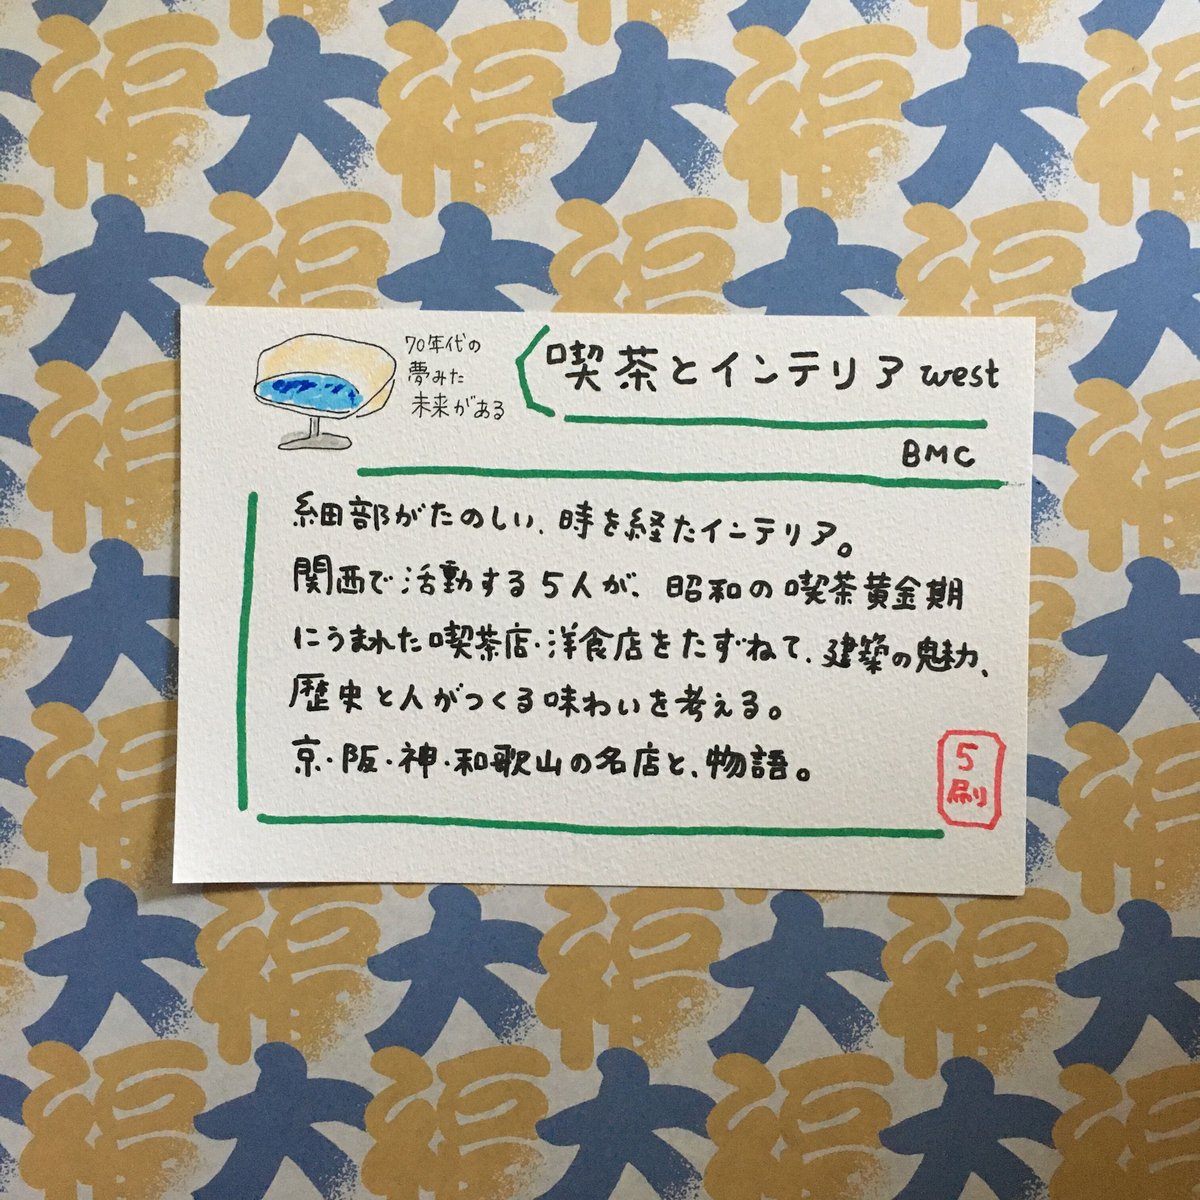 70年代の
夢みた
未来がある
喫茶とインテリア west
BMC
細部がたのしい、時を経たインテリア。
関西で活動する5人が、昭和の喫茶黄金期
にうまれた喫茶店・洋食店をたずねて、建築の魅力、
歴史と人がつくる味わいを考える。
京・阪・神・和歌山の名店と、物語。
5
刷